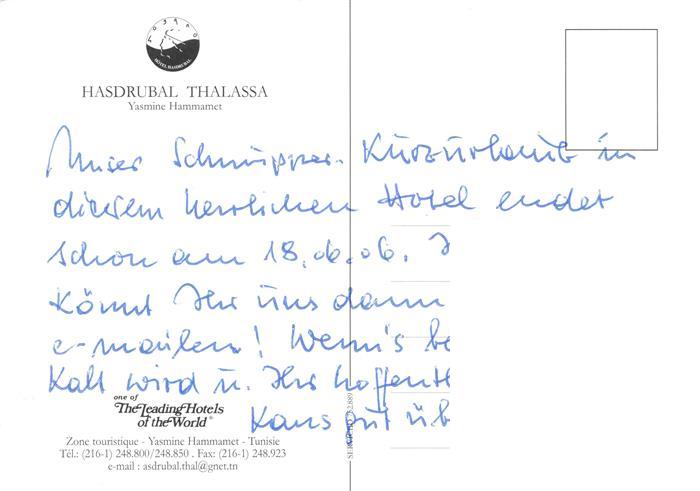 HOTEL HASDRUBAL
HASDRUBAL THALASSA
Yasmine Hammamet
Unser Schnupper-Kurzurlaub in
diesem herrlichen Hotel endet
schon am 18.06.06. I
Könnt Ihr uns dann
e-mailen! Wenn's be
Kalt wird u. Ihr hoffentl
Kaus gut üb
one of
The Leading Hotels
of the World®
Zone touristique - Yasmine Hammamet - Tunisie
Tél.: (216-1) 248.800/248.850 . Fax: (216-1) 248.923
e-mail : asdrubal.thal@gnet.tn